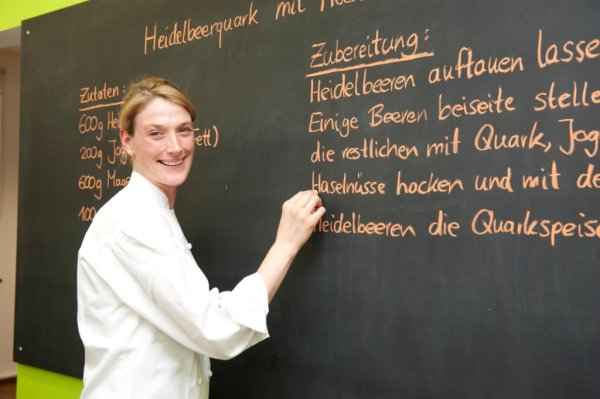 Heidelbeerquark mit
Zutaten:
600g
200g
600g
Zubereitung:
Heidelbeeren auftauen lasse
Einige Beeren beiseite stelle
die restlichen mit Quark,
Haselnüsse hacken und mit de
Heidelbeeren die Quarkspeise